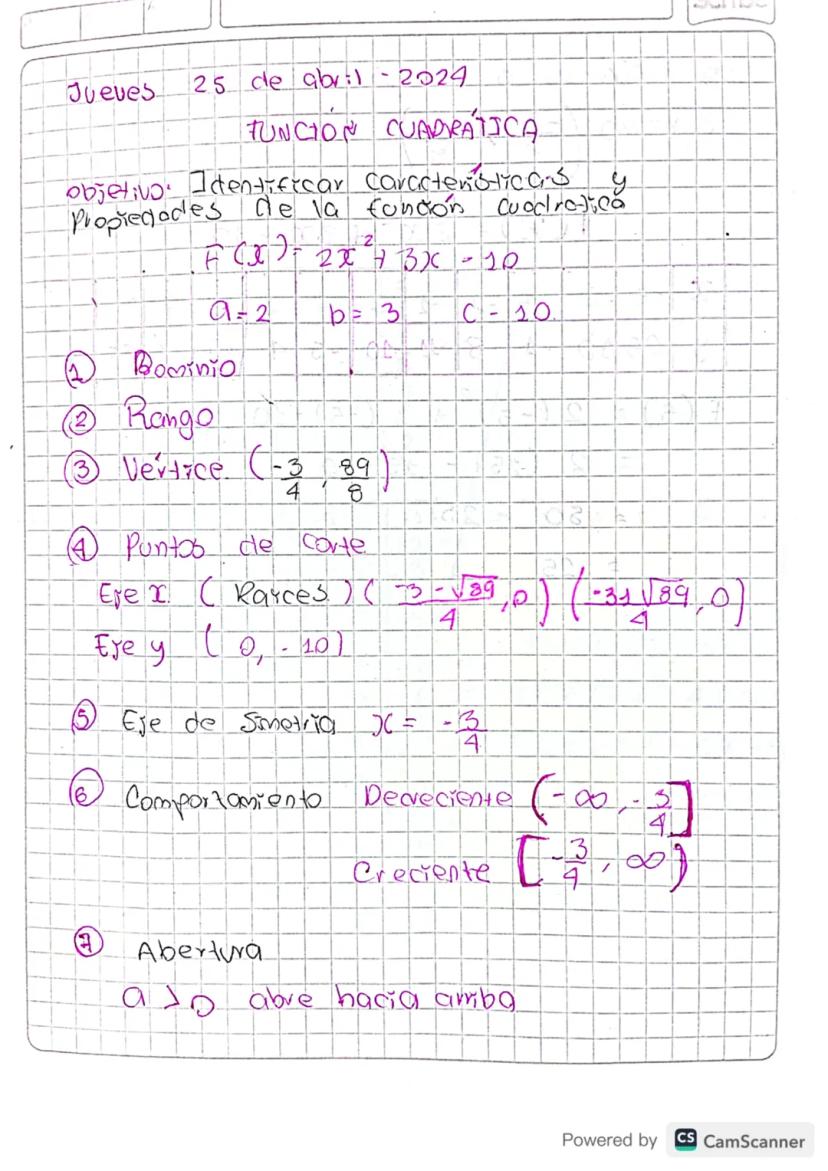 Jueves 25 de abril - 2024
FUNCIÓN CUADRÁTICA
objetivo: Identificar características y
propiedades de la función cuadratica
F(x) = 2x² + 3x - 10
a = 2 b = 3 c - 10
① Dominio
② Rango
③ Vértice (-3/4, 89/8)
④ Puntos de corte
Eje x. (Raices) (-3-√89/4, 0) (-3+√89/4, 0)
Eje y (0, -10)
⑤ Eje de Simetria x = -3/4
⑥ Comportamiento Decreciente (-∞, -3/4]
Creciente [-3/4, ∞)
⑦ Abertura
a > 0 abre hacia arriba
Powered by CS CamScanner